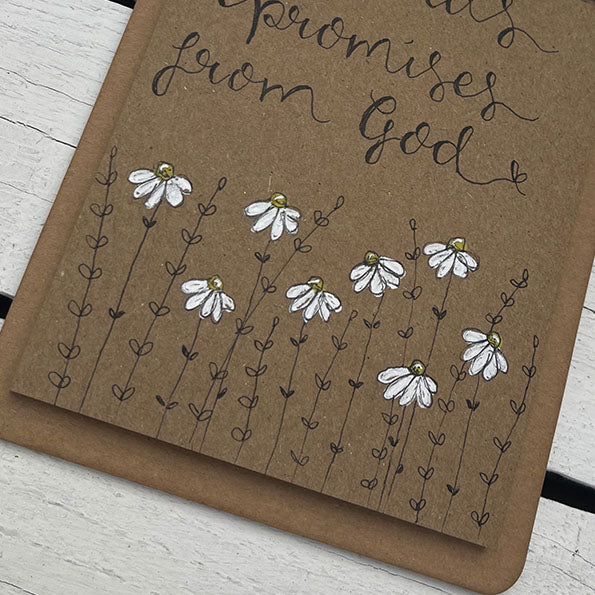 promises
from God